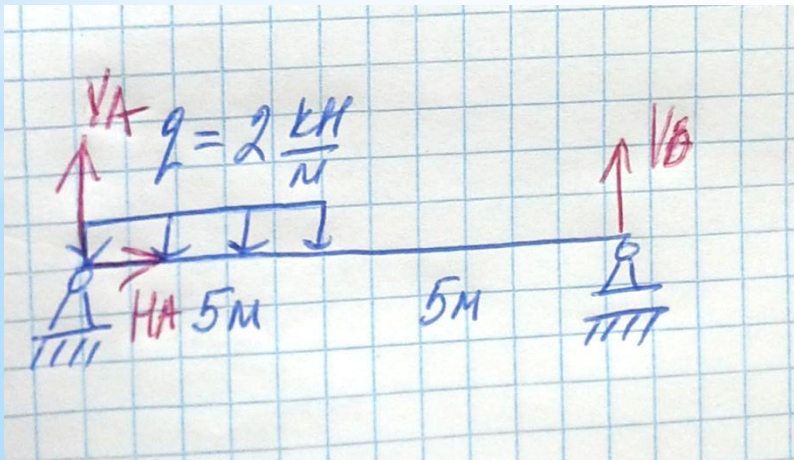 VA
q = 2 кН/м
VB
HA 5м 5м